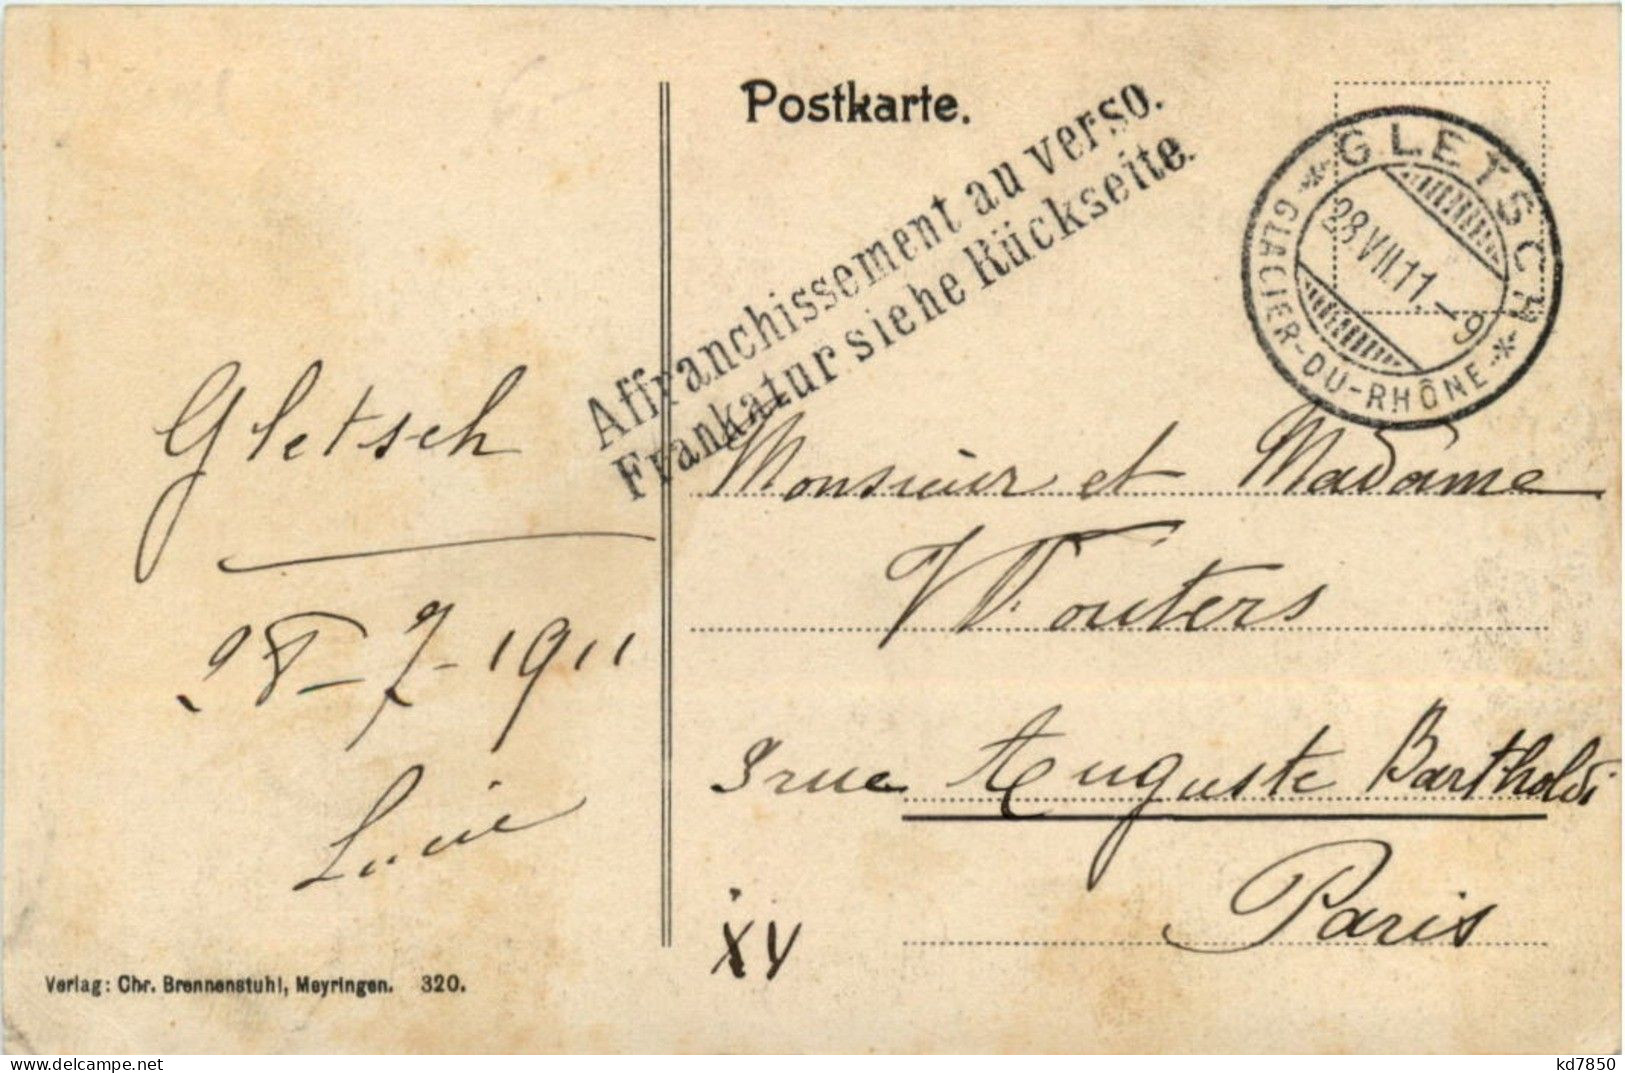 Postkarte.
Affranchissement au verso.
Frankatur siehe Rückseite.
* GLETSCH *
28 VII 11.-9
GLACIER-DU-RHÔNE
Gletsch
28-7-1911
Lucie
Monsieur et Madame
Wouters
3 rue Auguste Bartholdi
Paris
XV
Verlag: Chr. Brennenstuhl, Meyringen. 320.
www.delcampe.net
kd7850